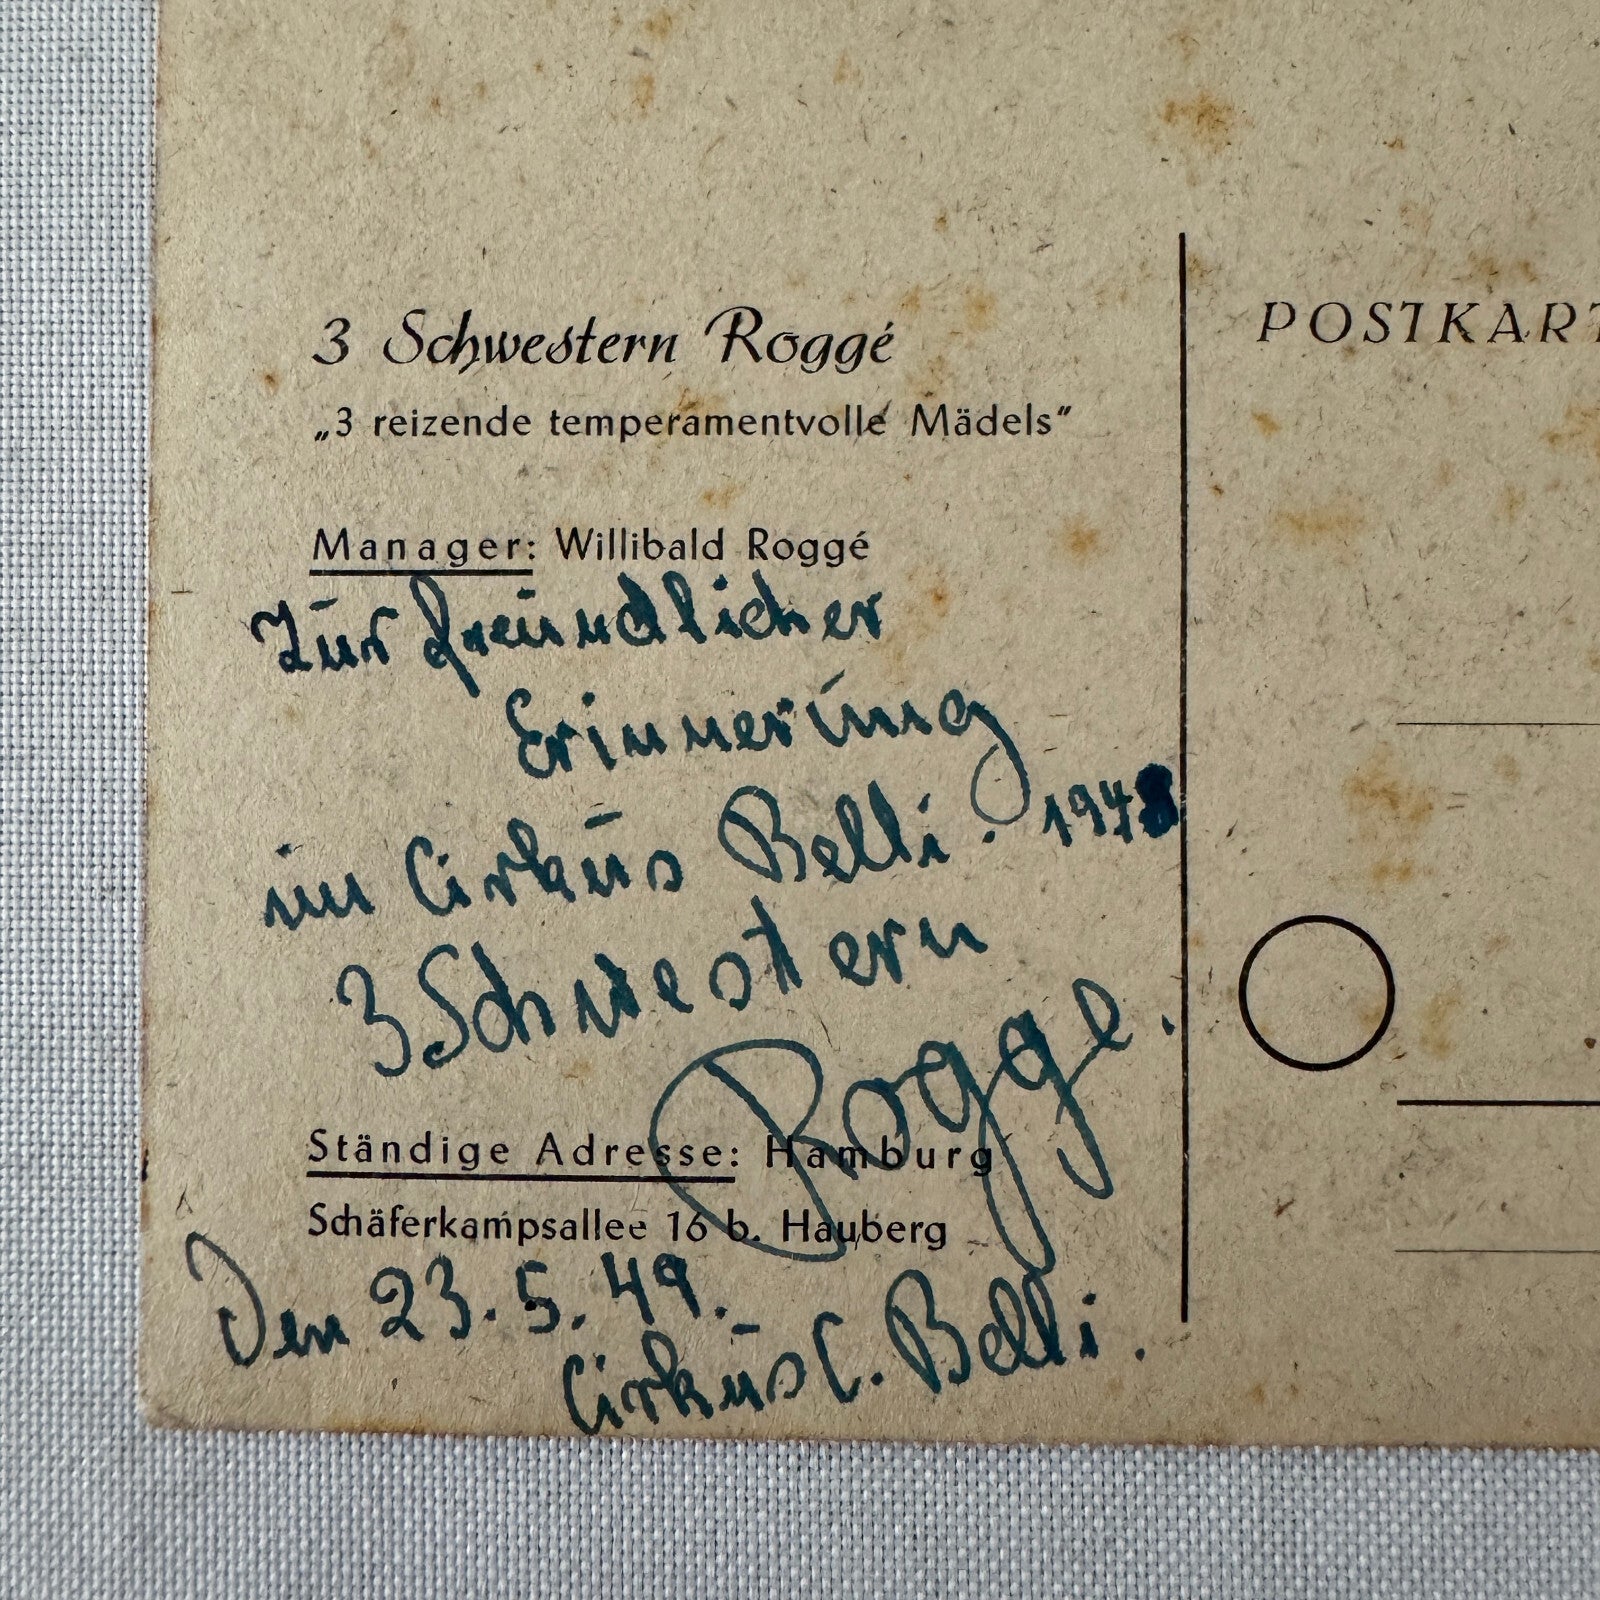 3 Schwestern Roggé
„3 reizende temperamentvolle Mädels"
POSTKART
Manager: Willibald Roggé
Zur freundlicher
Erinnerung
im Cirkus Belli. 1948
3 Schwestern
Rogge.
Ständige Adresse: Hamburg
Schäferkampsallee 16 b. Hauberg
Den 23.5.49.
Cirkus C. Belli.